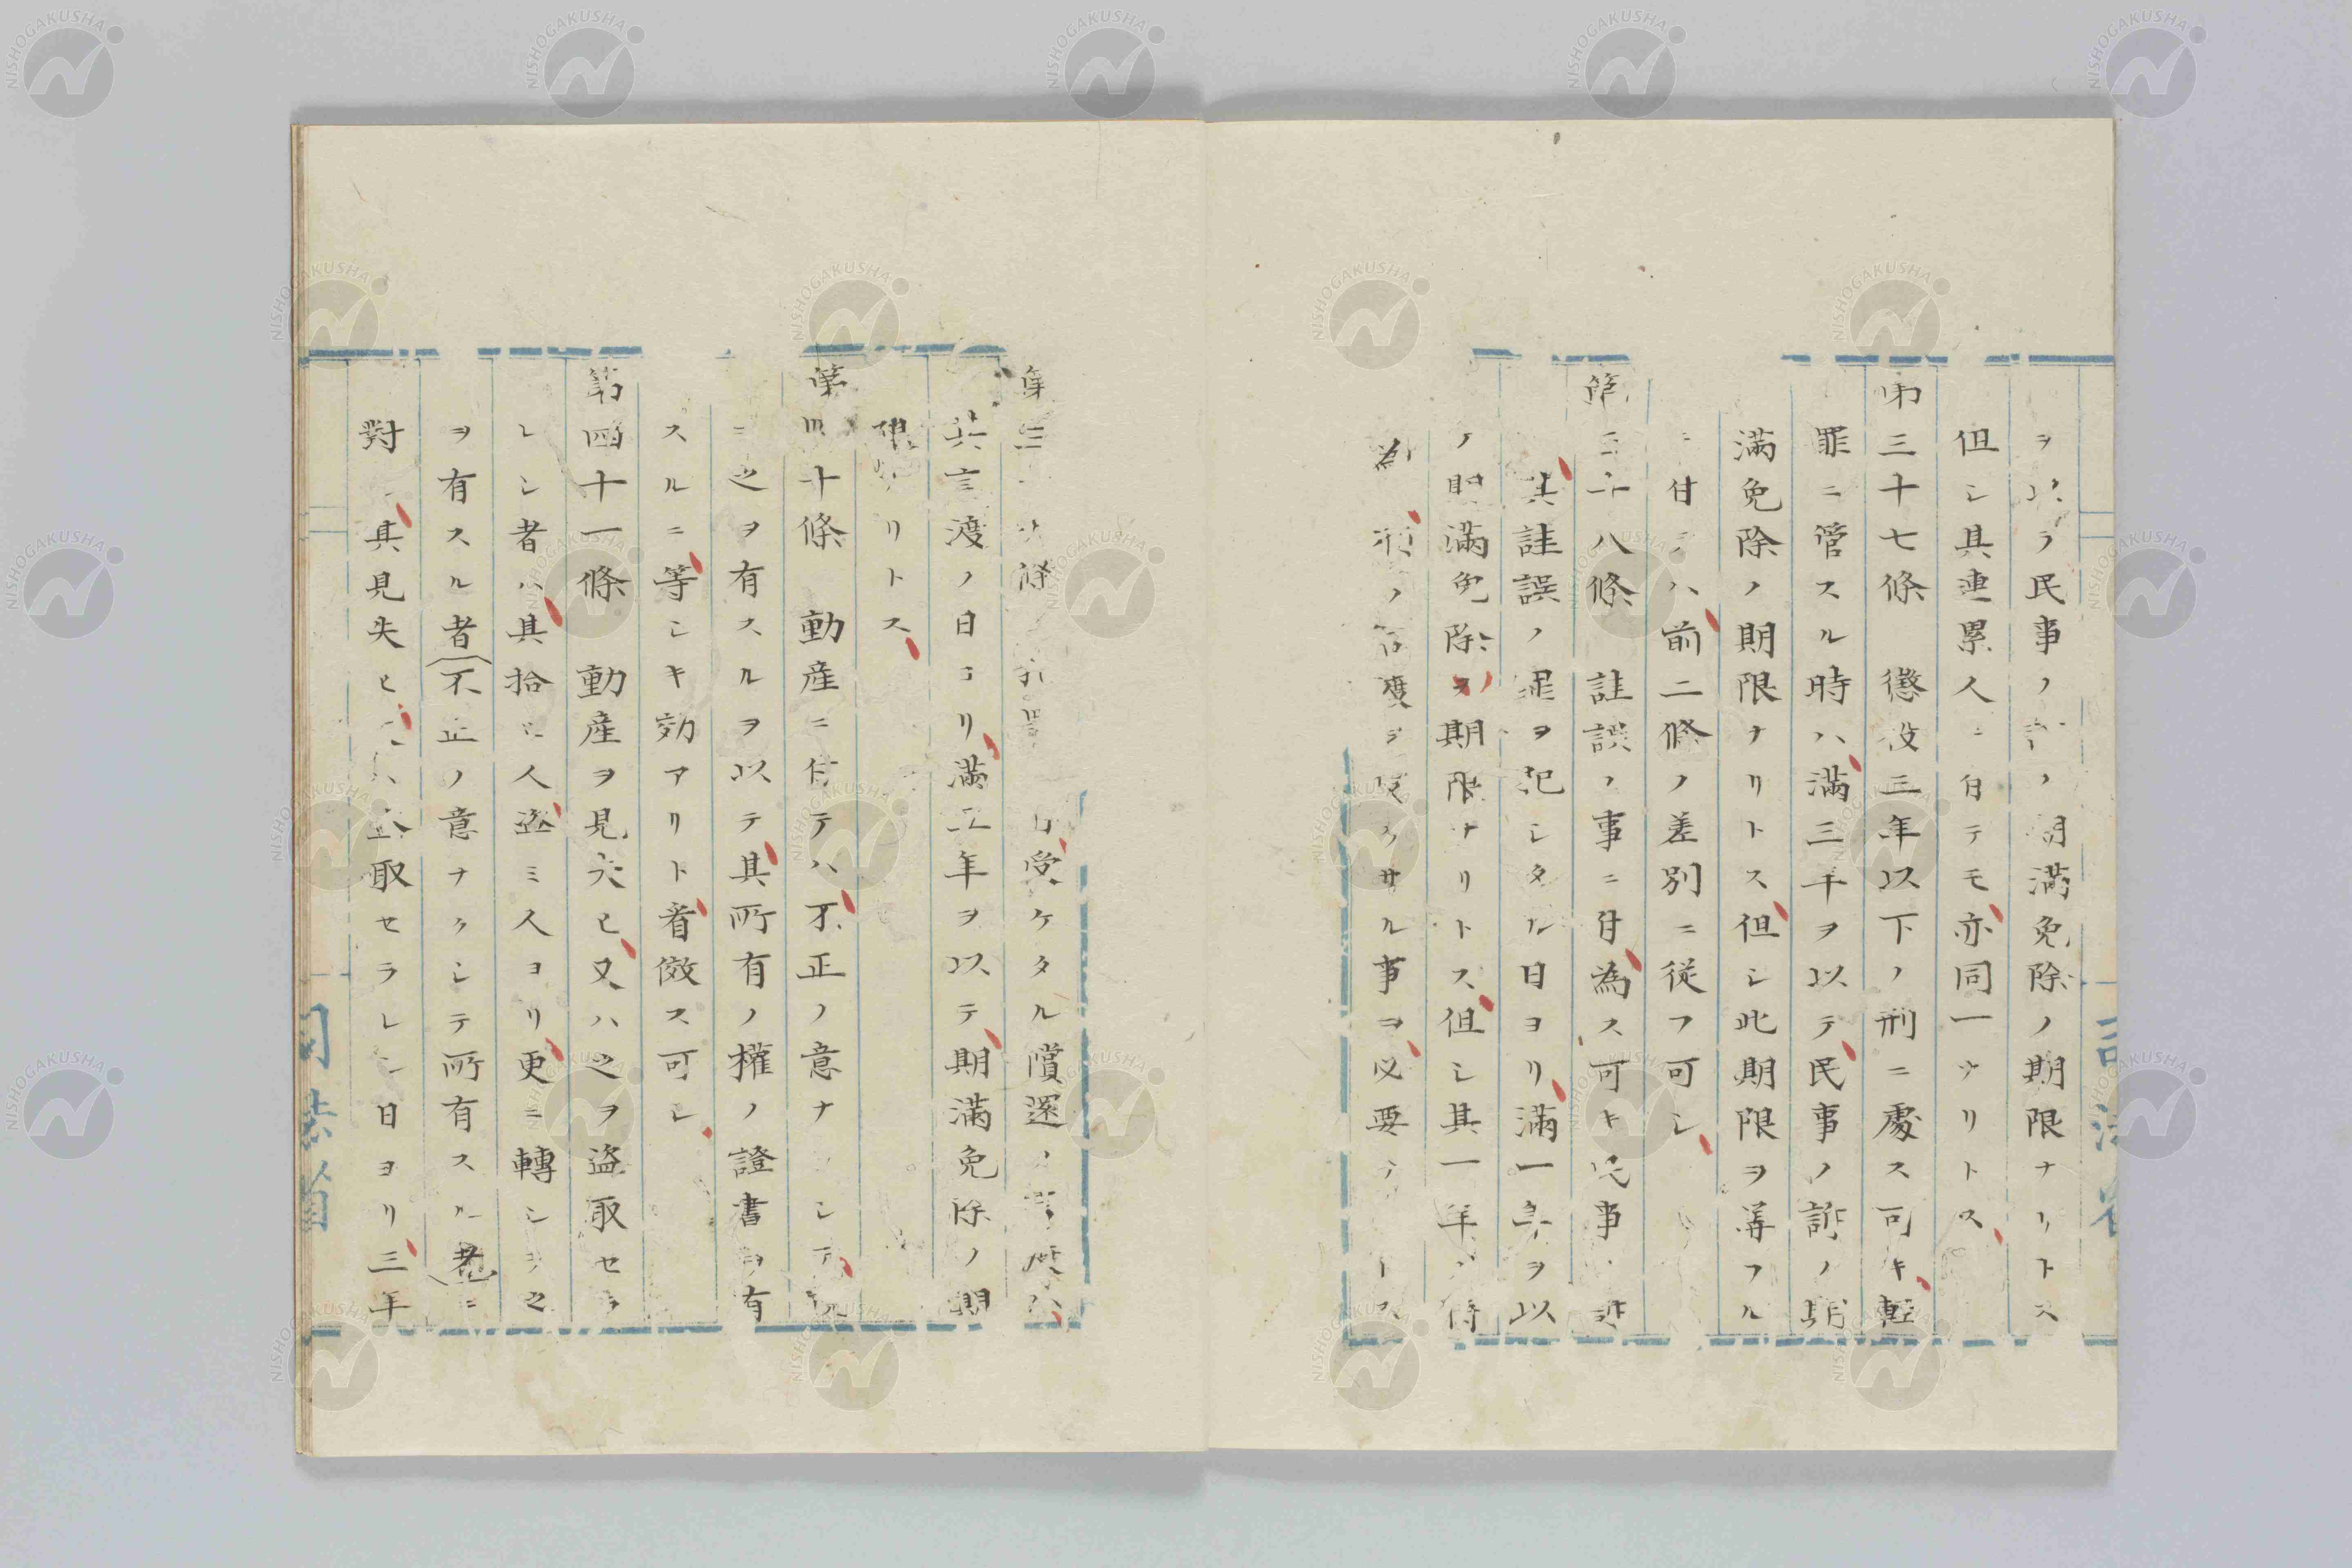 ヲ以テ民事ノ訴ノ期満免除ノ期限ナリトス
但シ其連累人ニ付テモ亦同一ナリトス
第三十七条 懲役三年以下ノ刑ニ處ス可キ軽
罪ニ管スル時ハ満三年ヲ以テ民事ノ訴ノ期
満免除ノ期限ナリトス但シ此期限ヲ算フル
ニ付テハ前二條ノ差別ニ従フ可シ
第三十八條 註誤ノ事ニ付為ス可キ民事ノ訴
ハ其註誤ノ罪ヲ犯シタル日ヨリ満一年ヲ以
ノ期満免除ヲ期限ナリトス但シ其一年
為 ノ言渡ヲ サル事ヲ必要
第三十九條 受ケタル償還ノ言渡ハ
其言渡ノ日ヨリ満三年ヲ以テ期満免除ノ期
限ナリトス
第四十條 動産ニ付テハ不正ノ意ナクシテ
ニ之ヲ有スルヲ以テ其所有ノ權ノ證書ヲ有
スルニ等シキ効アリト看做ス可シ
第四十一條 動産ヲ見失ヒ又ハ之ヲ盗取セラ
レシ者ハ其拾ヒ人盗ミ人ヨリ更ニ轉シテ之
ヲ有スル者(不正ノ意ナクシテ所有スル者)ニ
對シ其見失ヒ又ハ盗取セラレシ日ヨリ三年
司法省
司法省
NISHOGAKUSHA